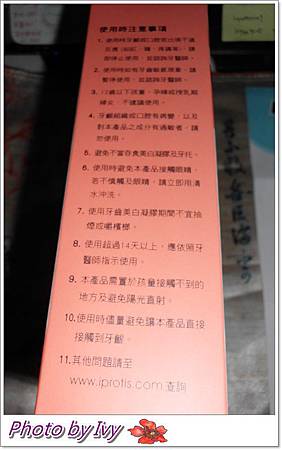 使用時注意事項
1. 使用時牙齦或口腔若出現不適
反應(如紅、腫、疼痛等),請
即停止使用,並諮詢牙醫師。
2. 使用時如有牙齒敏感現象,請
暫停使用,並諮詢牙醫師。
3. 12歲以下孩童、孕婦或授乳期
婦女,不建議使用。
4. 牙齦組織或口腔有病變,以及
對本產品之成分有過敏者,請
勿使用。
5. 避免不當吞食美白凝膠及牙托。
6. 使用時避免本產品接觸眼睛,
若不慎觸及眼睛,請立即用清
水沖洗。
7. 使用牙齒美白凝膠期間不宜抽
煙或嚼檳榔。
8. 使用超過14天以上,應依照牙
醫師指示使用。
9. 本產品需置於孩童接觸不到的
地方及避免陽光直射。
10.使用時儘量避免讓本產品直接
接觸到牙齦。
11.其他問題請至
www.iprotis.com.查詢
Photo by Ivy